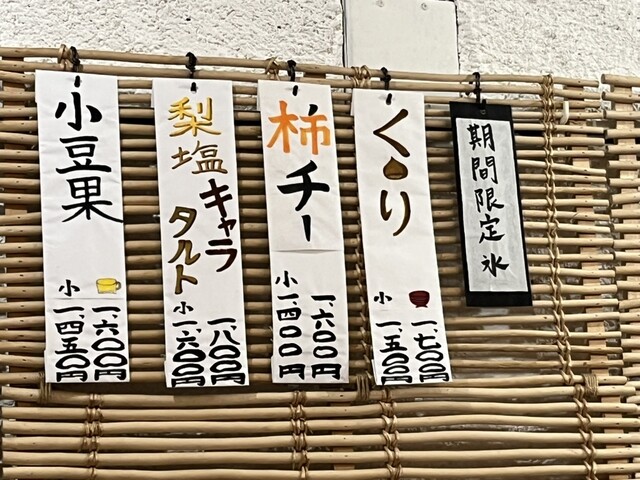 期間限定氷
くり
一、七〇〇円
小 一、五〇〇円
柿チー
一、六〇〇円
小 一、四〇〇円
梨塩キャラ
タルト
一、八〇〇円
小 一、六〇〇円
小豆果
一、六〇〇円
小 一、四五〇円